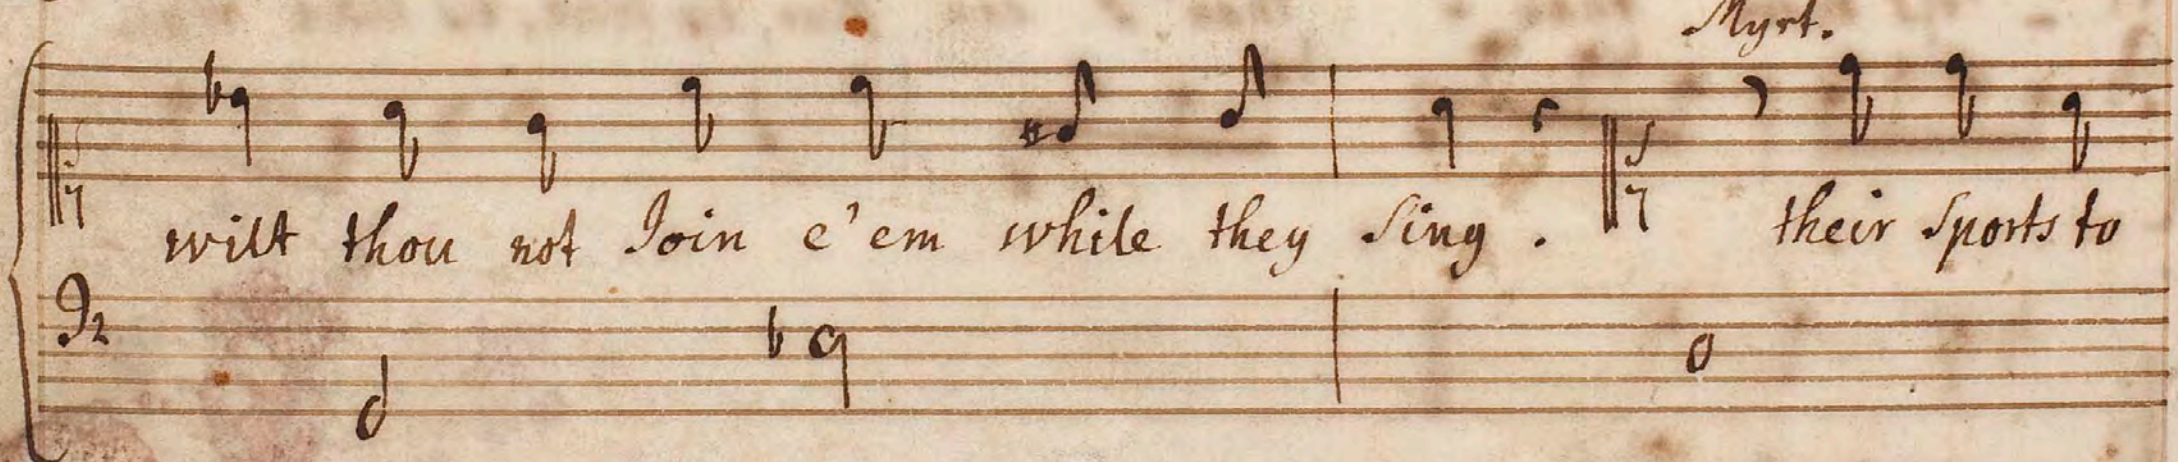 Myrt.
wilt thou not Join e'em while they sing . their sports to